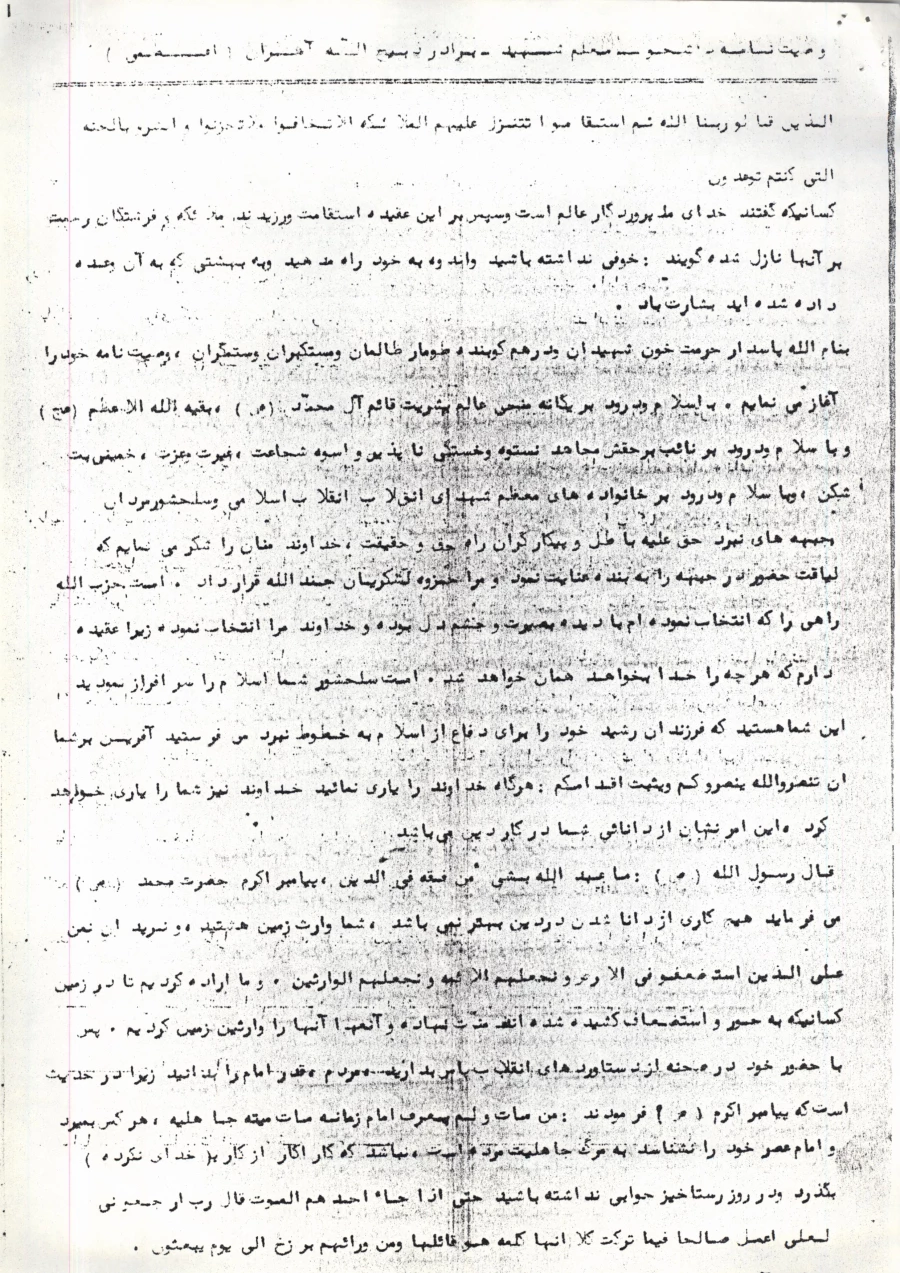 ۱
وصیت نامه دانشجو معلم شهید برادر ذبیح الله آهنران ( اعـظمی )
الذین قالو ربنا الله ثم استقا موا تتنزل علیهم الملا ئکه الا تخافوا ولاتحزنوا و ابشرو بالجنه
التی کنتم توعد ون
کسانیکه گفتند خدای ما پروردگار عالم است وسپس بر این عقیده استقامت ورزیدند، ملائکه و فرشتگان رحمت
بر آنها نازل شده گویند : خوفی نداشته باشید واندوه به خود راه مدهید وبه بهشتی که به آن وعده
داده شده اید بشارت باد .
بنام الله پاسدار حرمت خون شهیدان ودرهم کوبنده طومار ظالمان ومستکبران وستمگران ، وصیت نامه خود را
آغاز می نمایم . با سلا م ودرود بر یگانه منجی عالم بشریت قائم آل محمّد (ص) ، بقیه الله الاعظم (عج)
و با سلا م ودرود بر نائب برحقش مجاهد نستوه وخستگی نا پذیر و اسوه شجاعت ، غیرت وعزت ، خمینی بت
شکن ، وبا سلا م ودرود بر خانواده های معظم شهدای انقلا ب انقلا ب اسلا می وسلحشورمردان
جبهه های نبرد حق علیه با طل و پیکارگران راه حق و حقیقت ، خداوند منان را شکر می نمایم که
لیاقت حضور در جبهه را به بنده عنایت نمود و مرا جزوه لشگریان جند الله قرار داد . امت حزب الله
راهی را که انتخاب نموده ام با دیده بصیرت و چشم دل بوده و خداوند مرا انتخاب نموده زیرا عقیده
دارم که هر چه را خدا بخواهد همان خواهد شد . امت سلحشور شما اسلا م را سر افراز نمودید
این شما هستید که فرزندان رشید خود را برای دفاع از اسلا م به خطوط نبرد می فرستید آفرین بر شما
ان تنصروالله ینصروکم ویثبت اقدامکم : هرگاه خداوند را یاری نمائید خداوند نیز شما را یاری خواهد
کرد ، این امر نشان از دانائی شما در کار دین می باشد
قال رسول الله ( ص ) : ما عبد الله بشی من فقه فی الدین ، پیامبر اکرم حضرت محمد ( ص )
می فرماید هیچ کاری از دانا شدن در دین بهتر نمی باشد ، شما وارث زمین هستید ، و نرید ان نمن
علی الذین استضعفو فی الا رض و نجعلهم الا ئمه و نجعلهم الوارثین . و ما اراده کردیم تا در زمین
کسانیکه به جور و استضعاف کشیده شده اند منت نهاده و آنها را وارثین زمین کردیم . پس
با حضور خود در صحنه از دستاوردهای انقلا ب پاس بدارید ، مردم ، قدر امام را بدانید زیرا در حدیث
است که پیامبر اکرم ( ص ) فرمودند : من مات ولم یعرف امام زمانه مات میته جاهلیه ، هر کس بمیرد
و امام عصر خود را نشناسد به مرگ جاهلیت مرده است ، نباشد که کار از کار ( خدای نکرده )
بگذرد ودر روز رستاخیز جوابی نداشته باشید حتی اذا جاء احد هم الموت قال رب ارجعونی
لعلی اعمل صالحا فیما ترکت کلا انها کلمه هو قائلها ومن ورائهم برزخ الی یوم یبعثون .